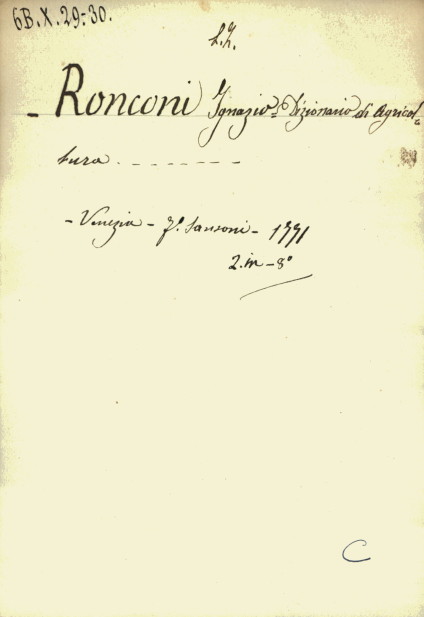 6B.X.29-30.
L.Z.
- Ronconi Ignazio = Dizionario di Agricol=
tura . - - - - - - -
- Venezia - Fº. Sansoni - 1771
2. in - 8º
C